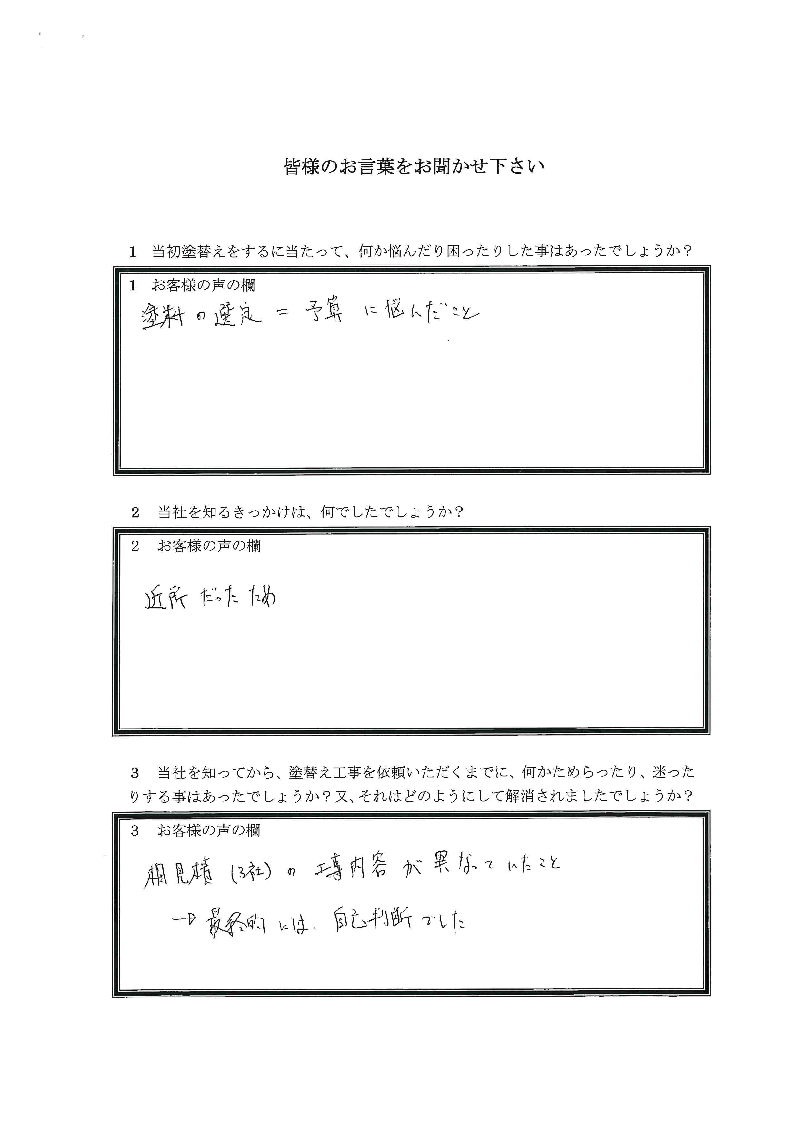 皆様のお言葉をお聞かせ下さい
1 当初塗替えをするに当たって、何か悩んだり困ったりした事はあったでしょうか？
1 お客様の声の欄
塗料の選定 = 予算 に悩んだこと
2 当社を知るきっかけは、何でしたでしょうか？
2 お客様の声の欄
近所だったため
3 当社を知ってから、塗替え工事を依頼いただくまでに、何かためらったり、迷った
りする事はあったでしょうか？又、それはどのようにして解消されましたでしょうか？
3 お客様の声の欄
相見積(3社)の工事内容が異なっていたこと
→最終的には、自己判断でした